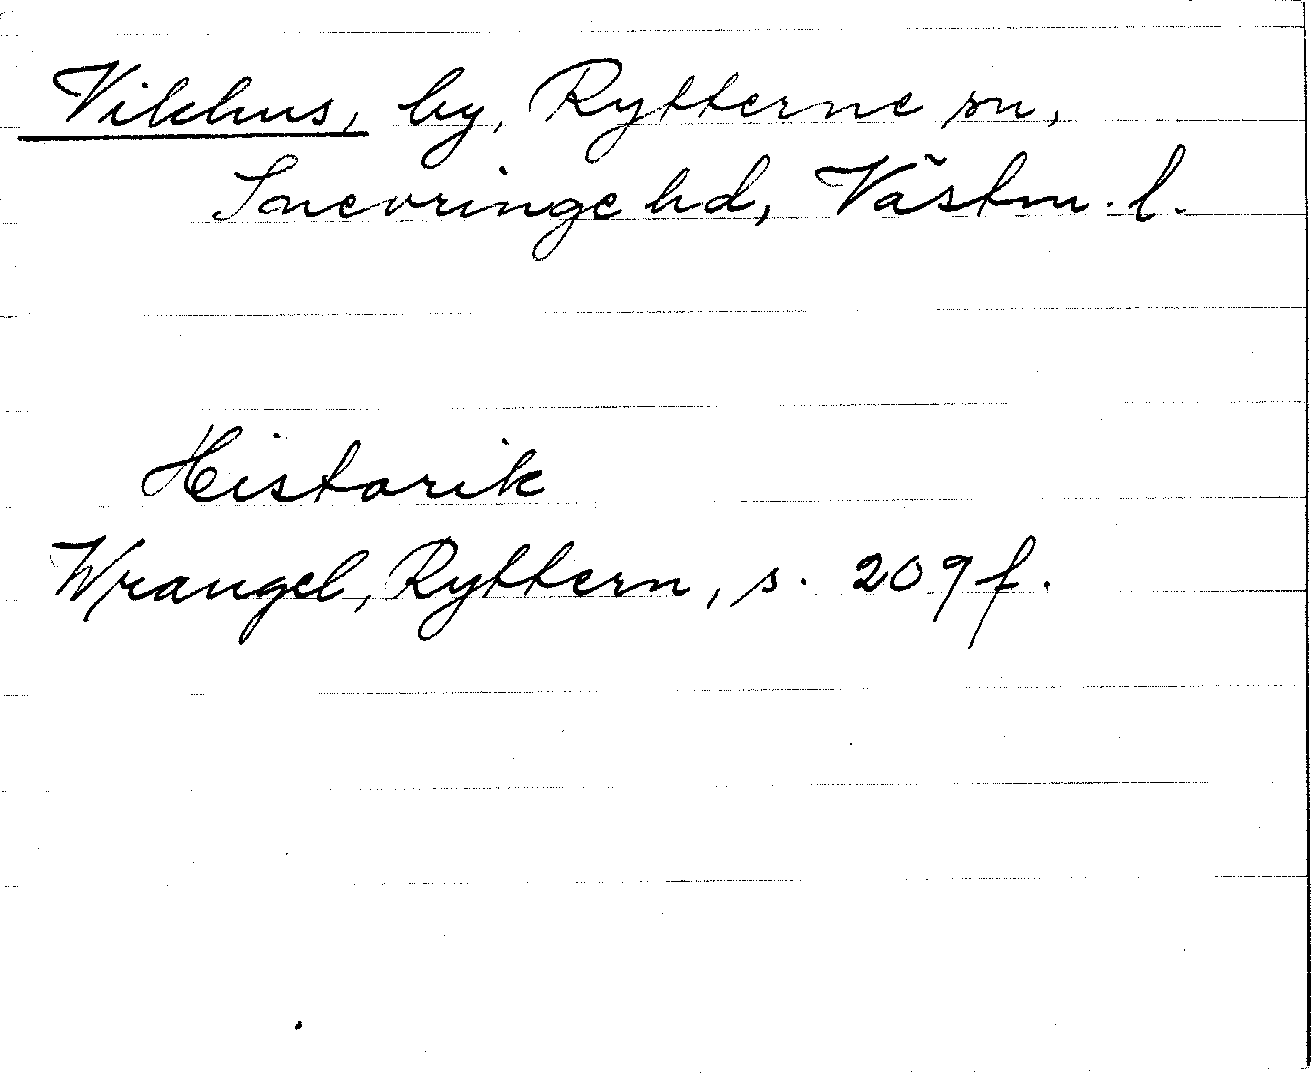 Vikhus, by, Rytterne sn,
Snevringe hd, Västm. l.
Historik
Wrangel, Ryttern, s. 209 f.